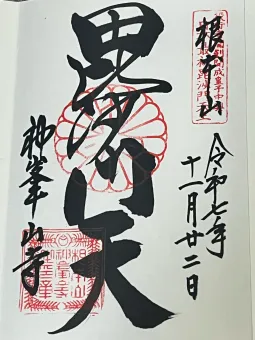 根本山
令和七年
十一月廿二日
毘沙門天
神峯山寺